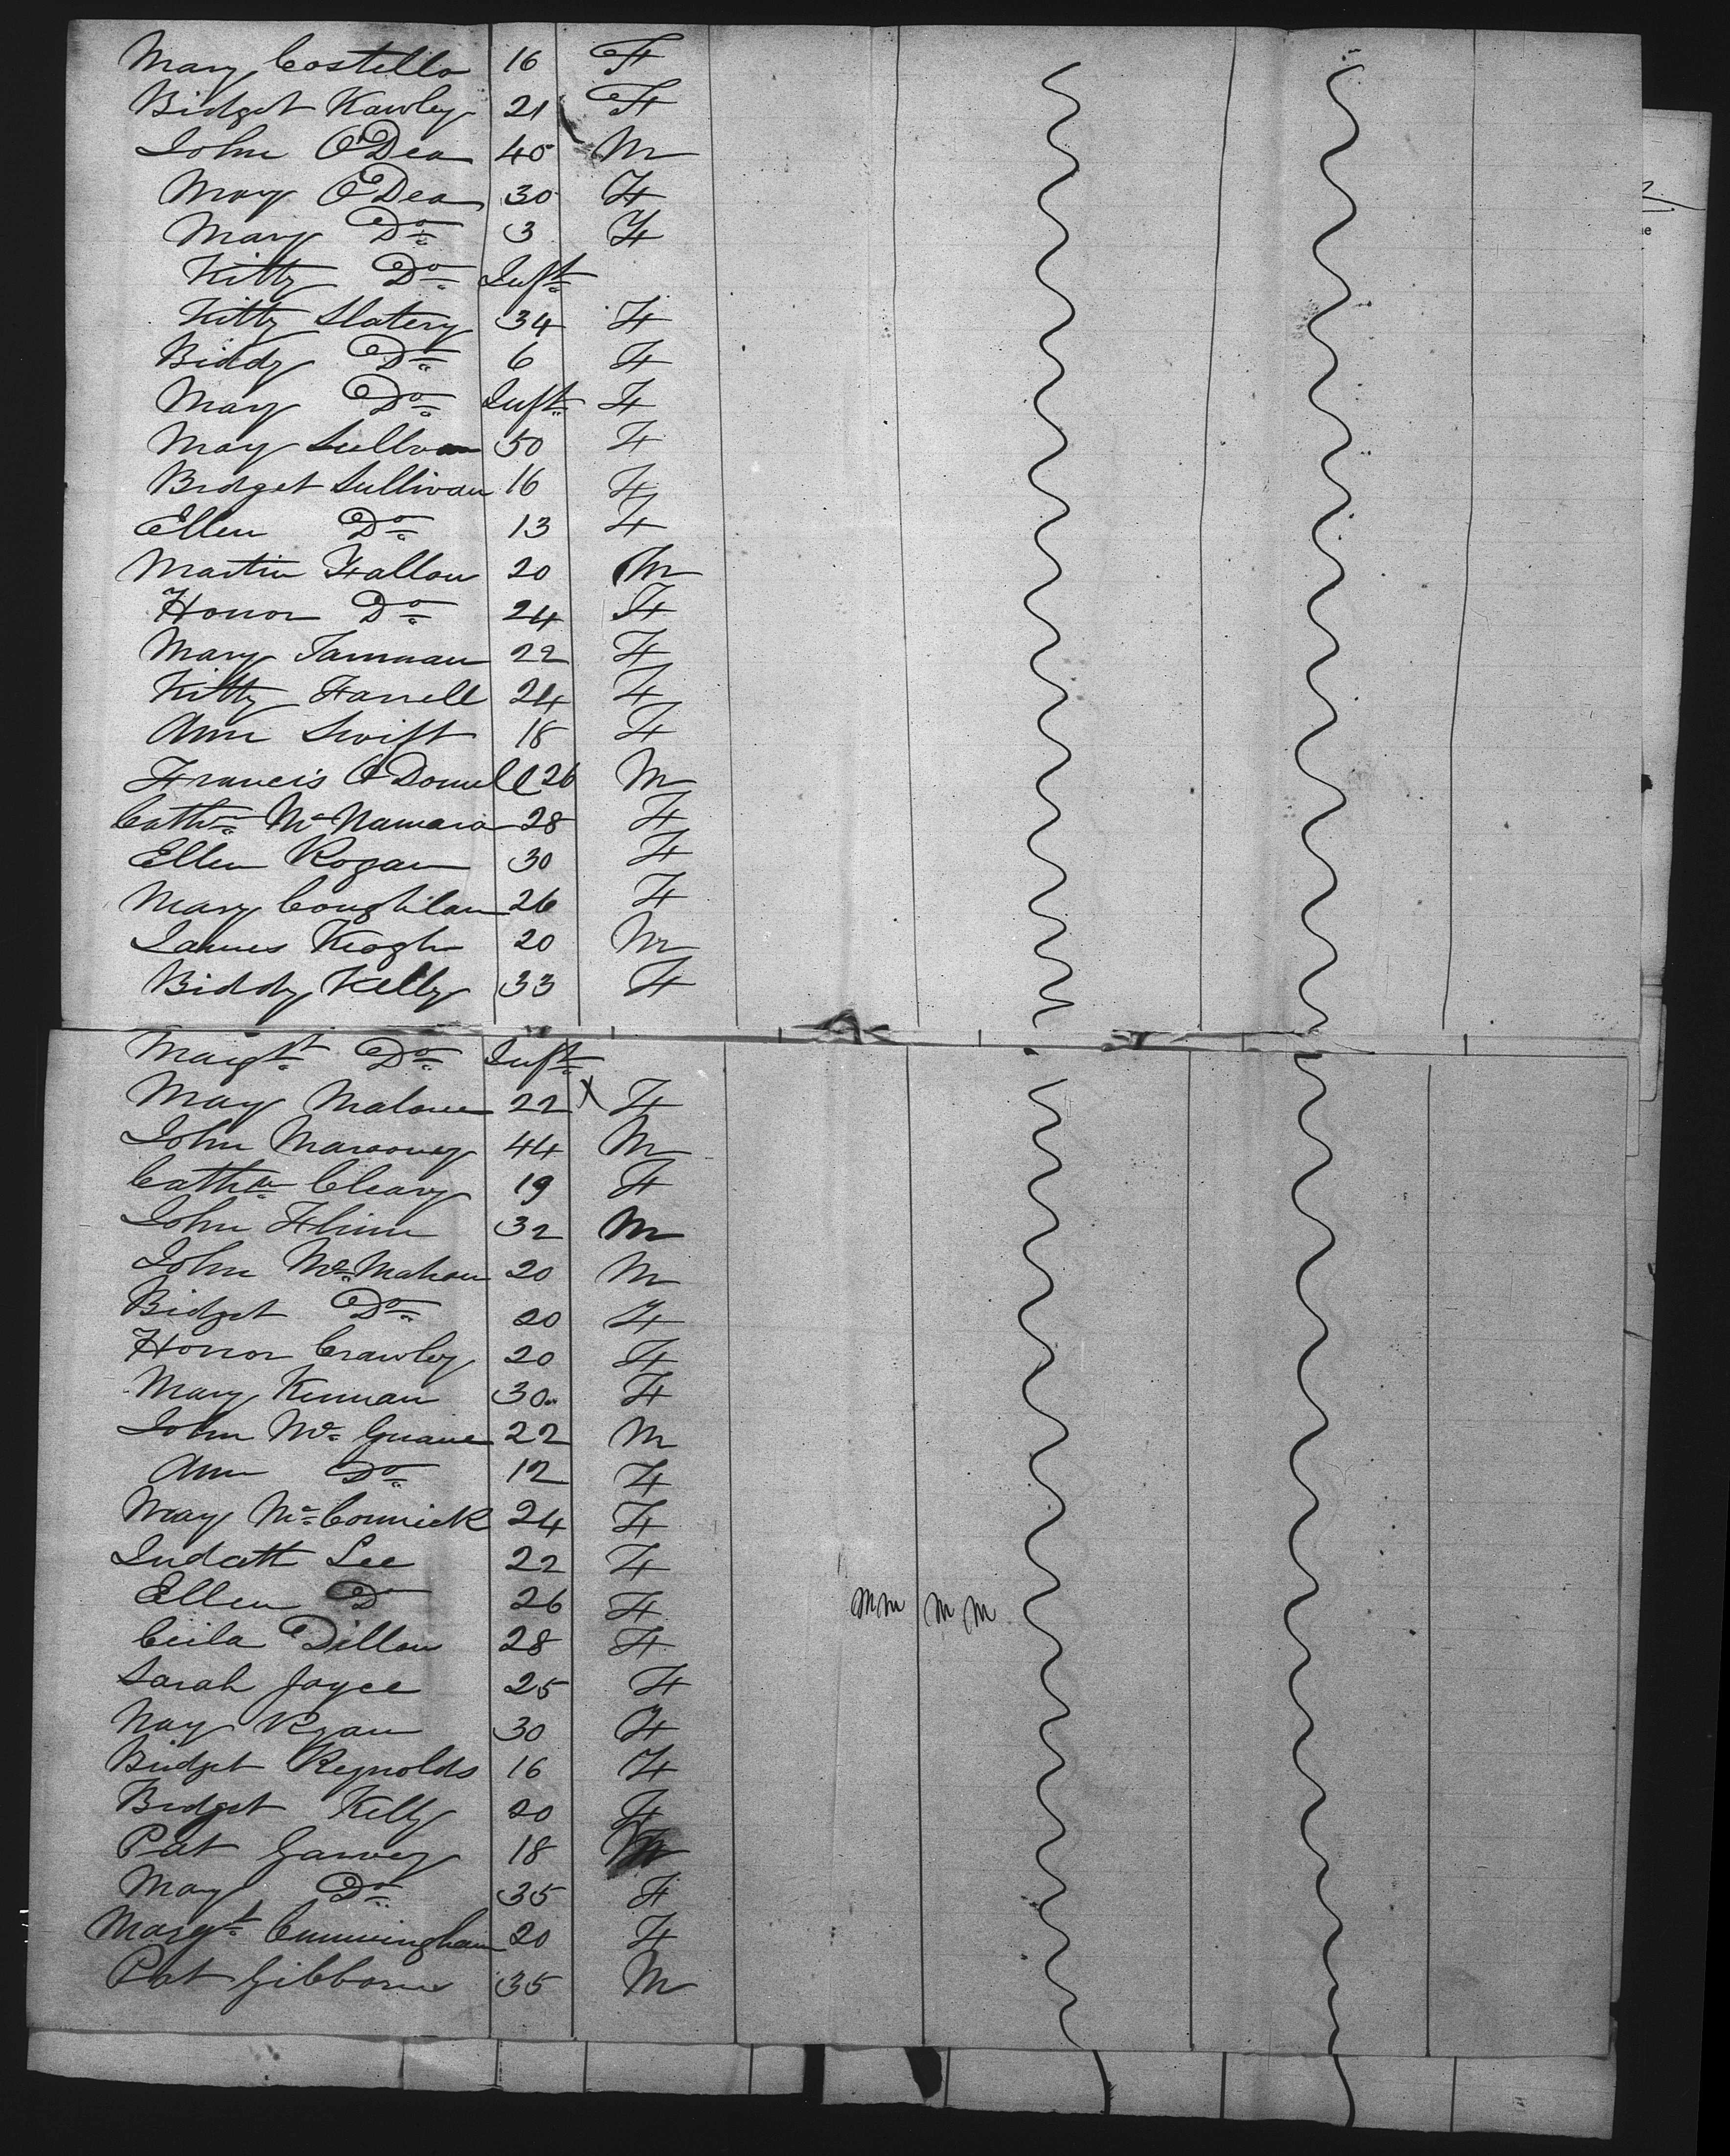 Mary Costello 16 F
Bidget Kawley 21 F
John O'Dea 40 M
May O'Dea 30 F
Mary Do 3 F
Kitty Do Inft
Kitty Slatery 34 F
Biddy Do 6 F
May Do Inft F
May Sullvan 50 F
Bridget Sullivan 16 F
Ellen Do 13 F
Martin Fallon 20 M
Honor Do 24 F
Mary 22 F
Kitty Farrell 24 F
Ann Swift 18 F
Francis O'Donnell 26 M
Cathn McNamara 28 F
Ellen Rogan 30 F
Mary Coughlan 26 F
James Keogh 20 M
Biddy Kelly 33 F
Margt Do Inft
May Malone 22 x F
John Marooney 44 M
Cathn Cleary 19 F
John Flinn 32 M
John McMahon 20 M
Bidget Do 20 F
Honor Crawley 20 F
Mary Kennan 30 F
John McGuane 22 M
Ann Do 12 F
May McCormick 24 F
Judath Lee 22 F
Ellen D 26 F mm m m
Ceila Dillon 28 F
Sarah Joyce 25 F
May Ryan 30 F
Bidget Reynolds 16 F
Bridget Kelly 20 F
Pat Garvey 18 M
May Do 35 F
Margt Cunningham 20 F
Pat Gibbons 35 M